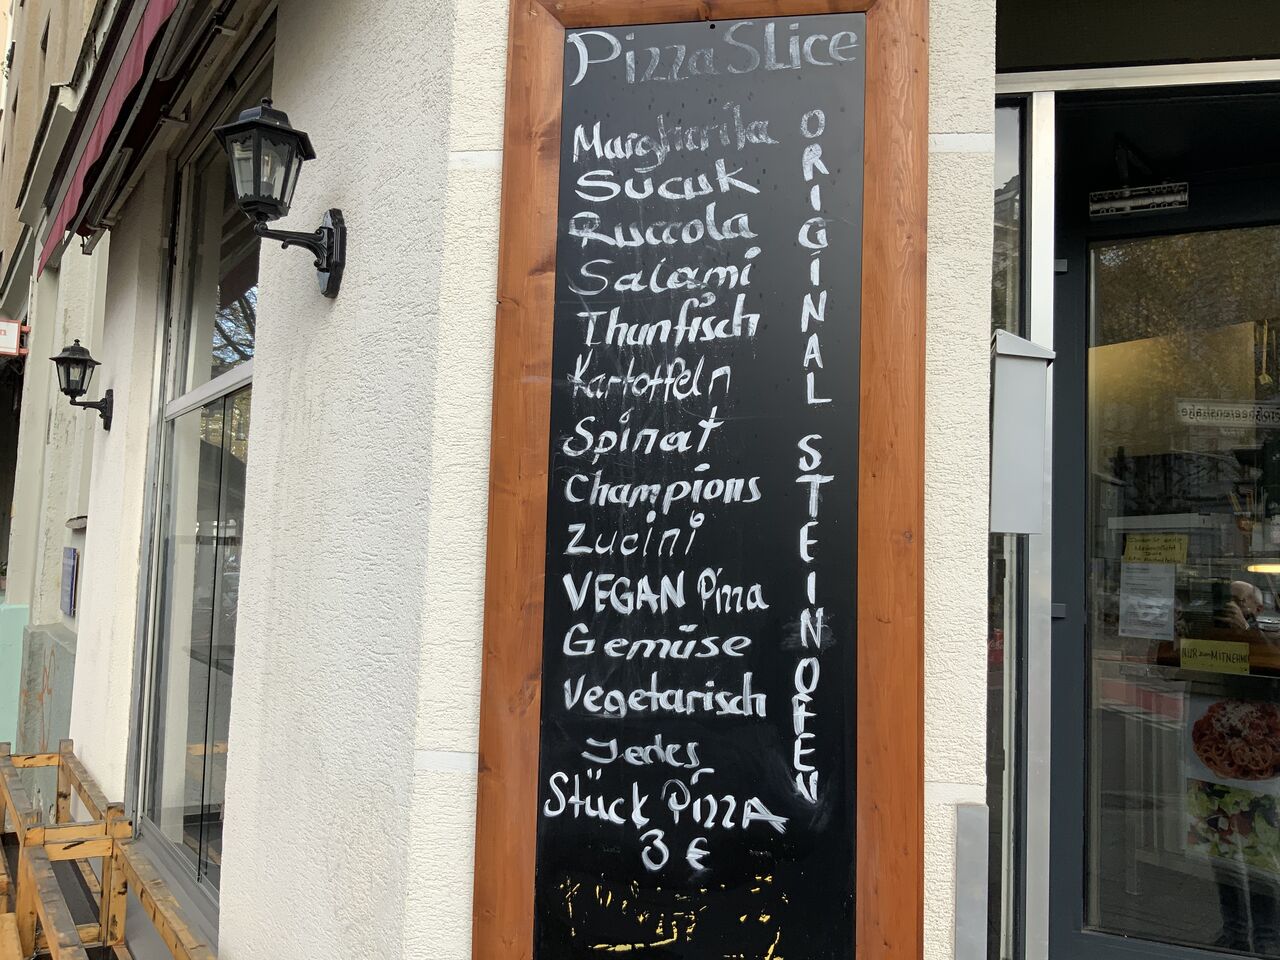 Pizza SLice
Margharita
Sucuk
Ruccola
Salami
Thunfisch
Kartoffeln
Spinat
Champions
Zucini
VEGAN Pizza
Gemüse
Vegetarisch
Jedes
Stück PizzA
3 €
ORIGINAL STEINOFEN
NUR zum MITNEHMEN